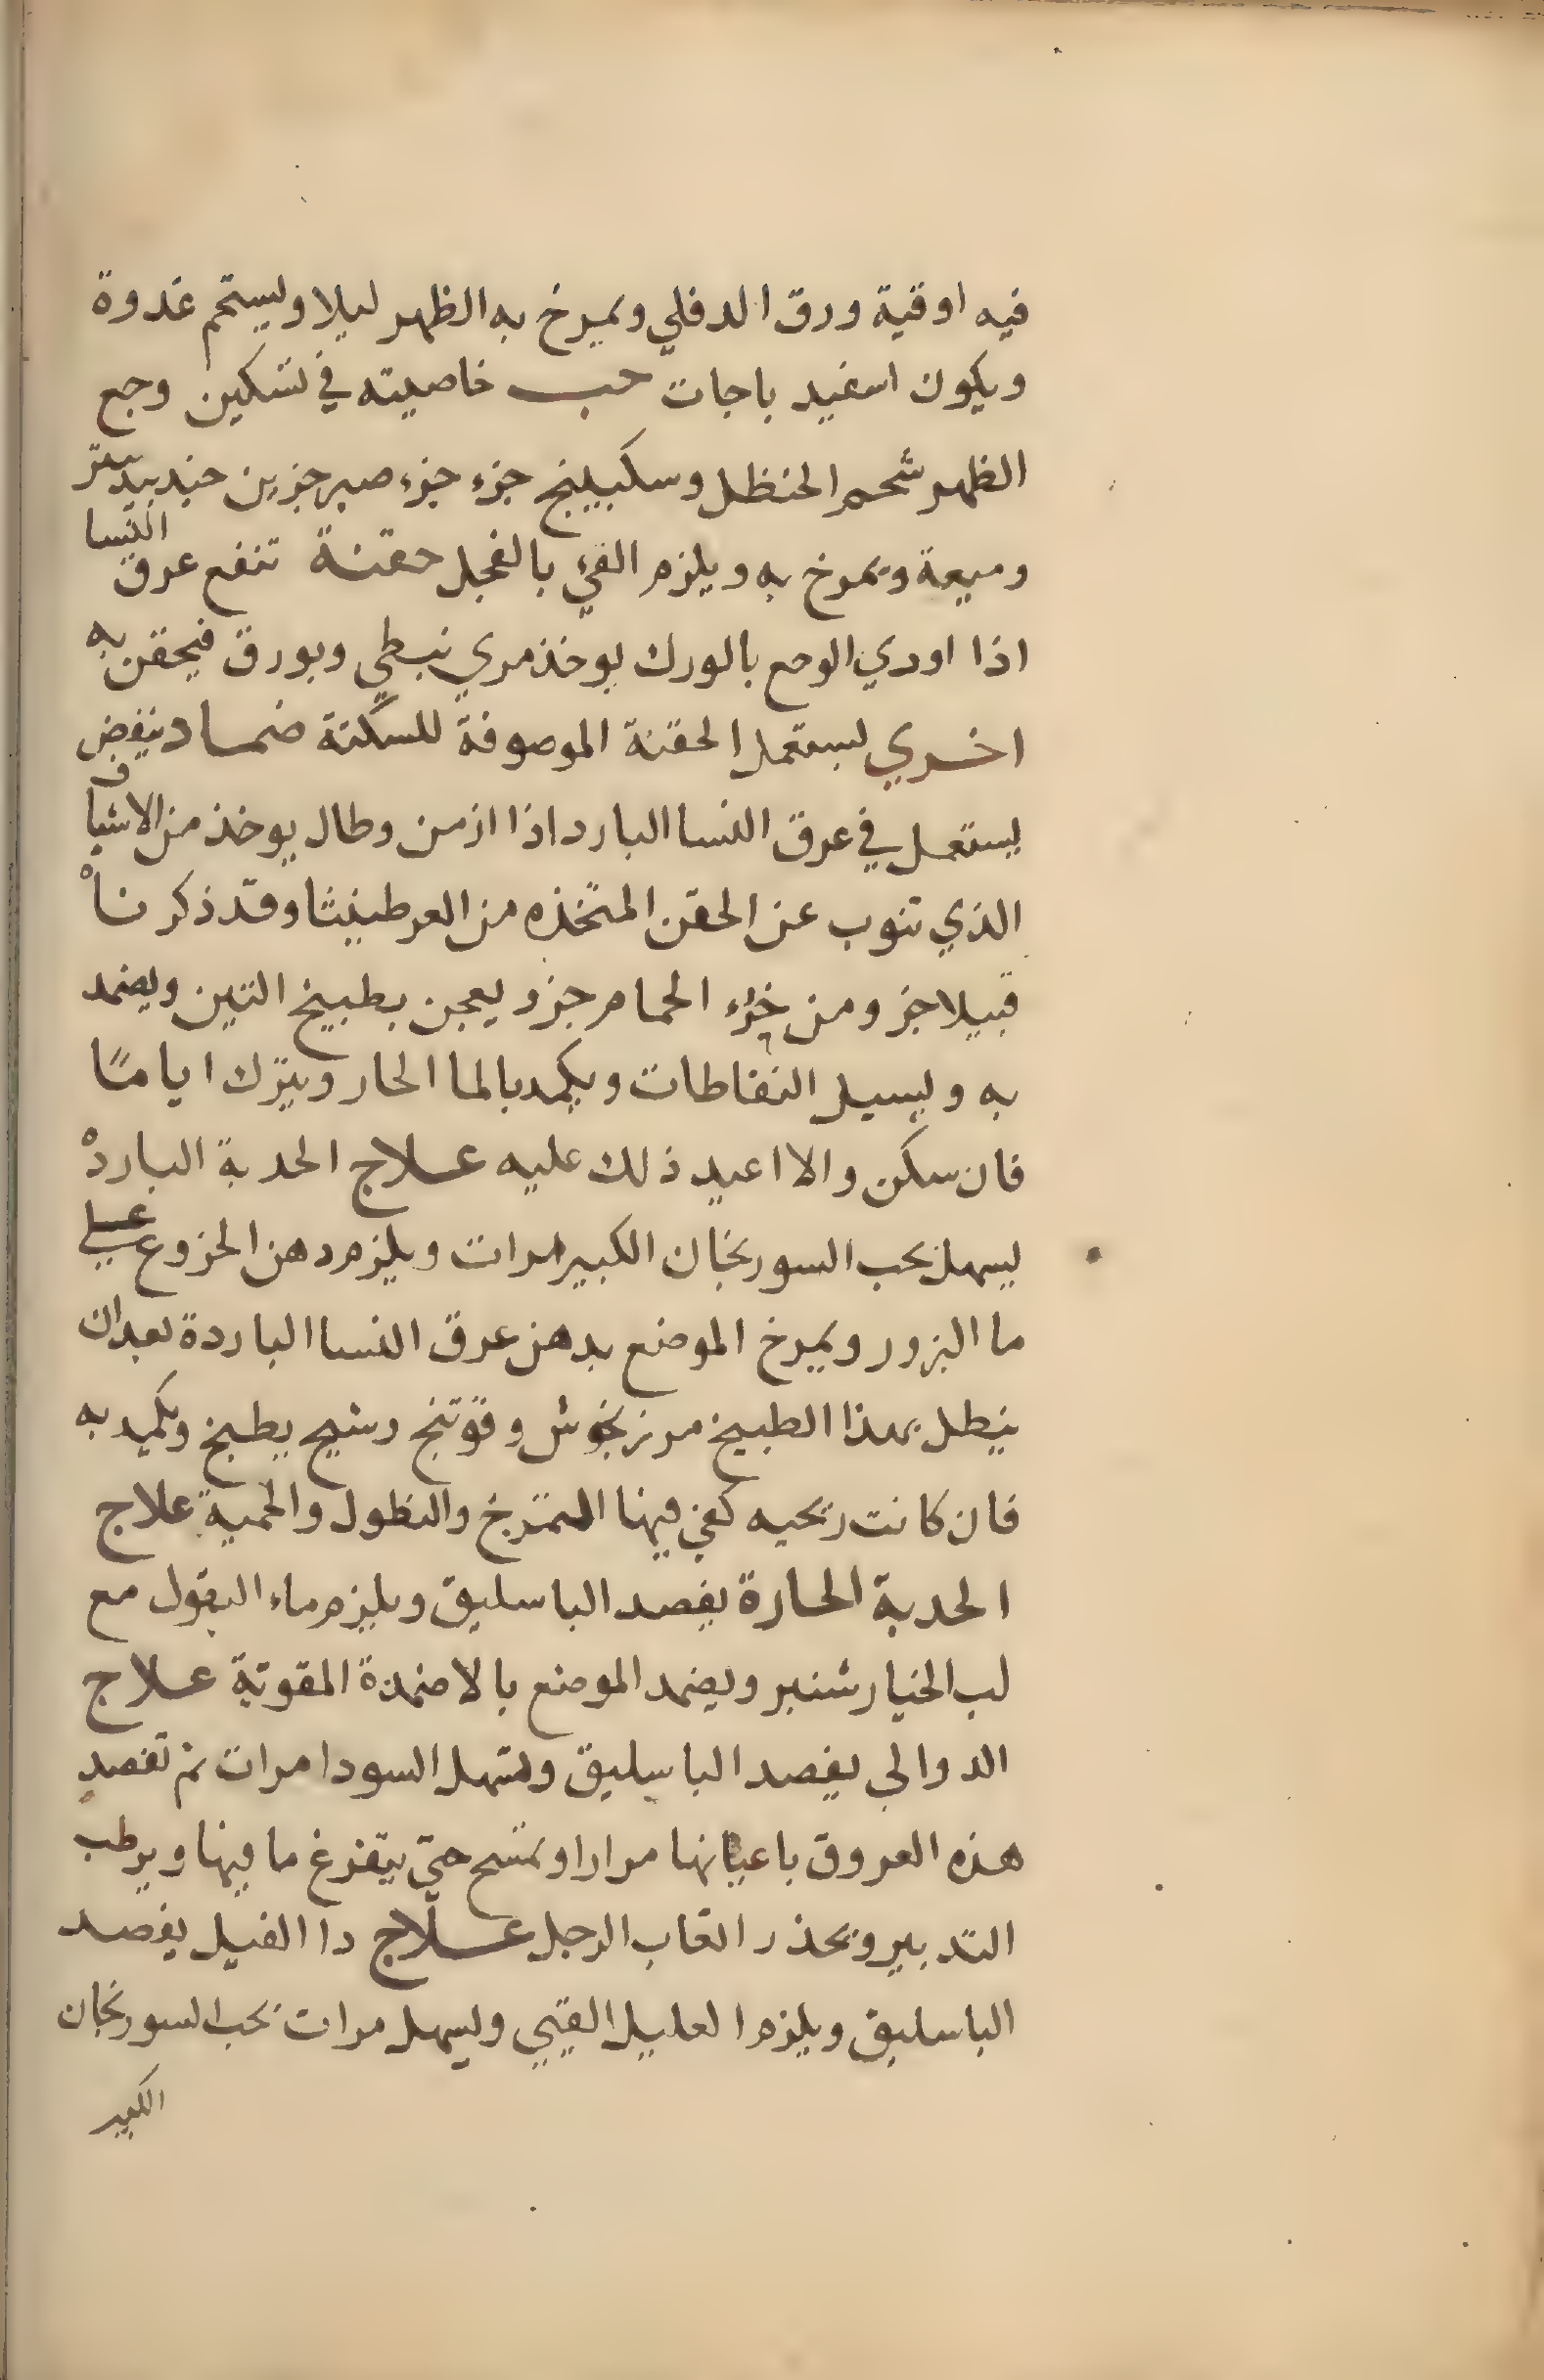 فيه اوقية ورق الدفلي ويمرخ به الظهر ليلا وليستحم غدوة
ويكون اسفيد باجات حب خاصيته في تسكين وجع
الظهر شحم الحنظل وسكبينج جزء جزء صبر جزين جندبيدستر
وميعة ويمرخ به ويلزم القئ بالفجل حقنة تنفع عرق النسا
اذا اودي الوجع بالورك يوخذ مري نبطي وبورق فيحقن به
اخري ليستعمل الحقنة الموصوفة للسكتة ضماد ينفض
يستعمل في عرق النسا البارد اذا ازمن وطال يوخذ من الاشياف
الذي تنوب عن الحقن المتخذه من العرطنيثا وقد ذكرناه
قبيلا جز ومن خرء الحمام جزو يعجن بطبيخ التين ويضمد
به وليسيل النفاطات ويكمد بالما الحار ويترك اياما
فان سكن والا اعيد ذلك عليه علاج الحدبة الباردة
ليسهل بحب السورنجان الكبير مرات ويلزم دهن الخروع علي
ما البزور ويمرخ الموضع بدهن عرق النسا الباردة بعد ان
ينطل بهذا الطبيخ مرزنجوش وفوتنج وشيح يطبخ ويكمد به
فان كانت ريحيه كفي فيها التمريخ والنطول والحمية علاج
الحدبة الحارة يفصد الباسليق ويلزم ماء البقول مع
لب الخيار شنبر ويضمد الموضع بالاضمدة المقوية علاج
الدوالي يفصد الباسليق وليسهل السودا مرات ثم تفصد
هذه العروق باعيانها مرارا وتمسح حتي يتفرغ ما فيها ويرطب
التدبير ويحذر اتعاب الرجل علاج دا الفيل يفصد
الباسليق ويلزم العليل القيي وليسهل مرات بحب السورنجان
الكبير